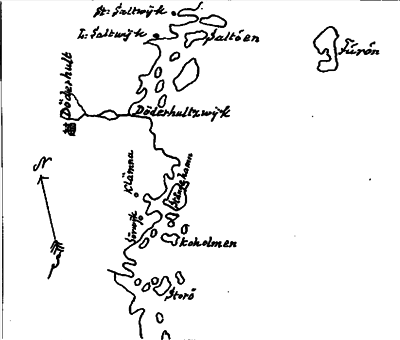 St: Saltwijk
L: Saltwijk
Saltöen
Furön
Döderhult
Döderhultzwijk
N
Klämna
Skoholmen
Storö